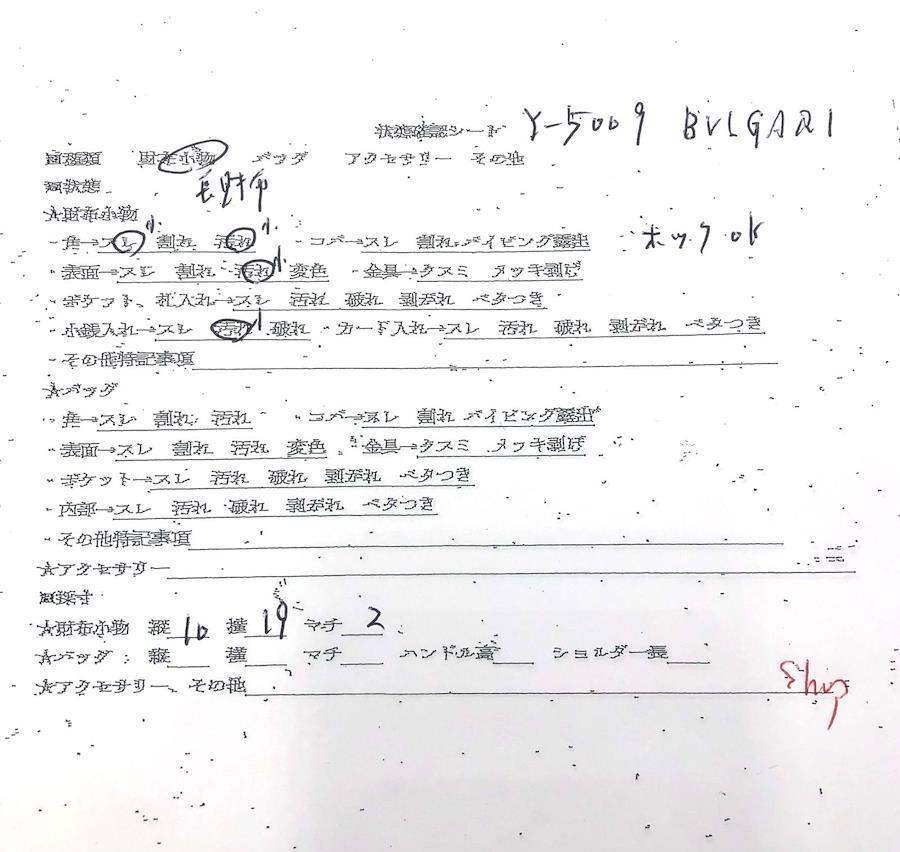 状態確認シート Y-5009 BVLGARI
■種類 財布小物 バッグ アクセサリー その他
■状態 長財布
★財布小物
・角→スレ 小 割れ 汚れ 小 ・コバ→スレ 割れ パイピング露出 ホックok
・表面→スレ 割れ 汚れ 小 変色 ・金具→クスミ メッキ剥げ
・ポケット、札入れ→スレ 汚れ 破れ 剥がれ ベタつき
・小銭入れ→スレ 汚れ 破れ ・カード入れ→スレ 汚れ 破れ 剥がれ ベタつき
・その他特記事項
★バッグ
・角→スレ 割れ 汚れ ・コバ→スレ 割れ パイピング露出
・表面→スレ 割れ 汚れ 変色 ・金具→クスミ メッキ剥げ
・ポケット→スレ 汚れ 破れ 剥がれ ベタつき
・内部→スレ 汚れ 破れ 剥がれ ベタつき
・その他特記事項
★アクセサリー
■採寸
★財布小物 縦 10 横 19 マチ 2
★バッグ: 縦 横 マチ ハンドル高 ショルダー長
★アクセサリー、その他
Shop